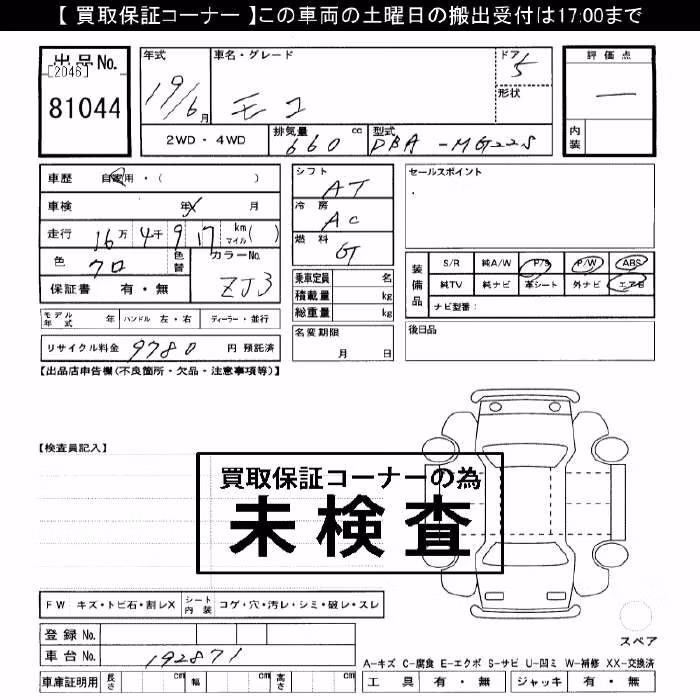 【 買取保証コーナー 】この車両の土曜日の搬出受付は17:00まで
出品No.
[2046]
81044
年式
19/6月
車名・グレード
モコ
ドア
5
形状
評価点
—
内装
2WD・4WD
排気量 660 cc
型式 DBA-MG22S
車歴 自家用・( )
車検 年 月
走行 16万 4千 9 17 km マイル( )
色 クロ 色替
カラーNo. ZJ3
保証書 有・無
シフト AT
冷房 AC
燃料 GT
乗車定員 名
積載量 kg
総重量 kg
セールスポイント
装備品
S/R 純A/W P/S P/W ABS
純TV 純ナビ 革シート 外ナビ エアB
ナビ型番:
モデル年式 年 ハンドル 左・右 ディーラー・並行
名変期限
月 日
後日品
リサイクル料金 9780 円 預託済
【出品店申告欄(不良箇所・欠品・注意事項等)】
【検査員記入】
買取保証コーナーの為
未検査
FW キズ・トビ石・割レX シート内装 コゲ・穴・汚レ・シミ・破レ・スレ
スペア
登録No.
車台No. 192871
A-キズ C-腐食 E-エクボ S-サビ U-凹ミ W-補修 XX-交換済
車庫証明用 長さ cm 幅 cm 高さ cm
工具 有・無 ジャッキ 有・無